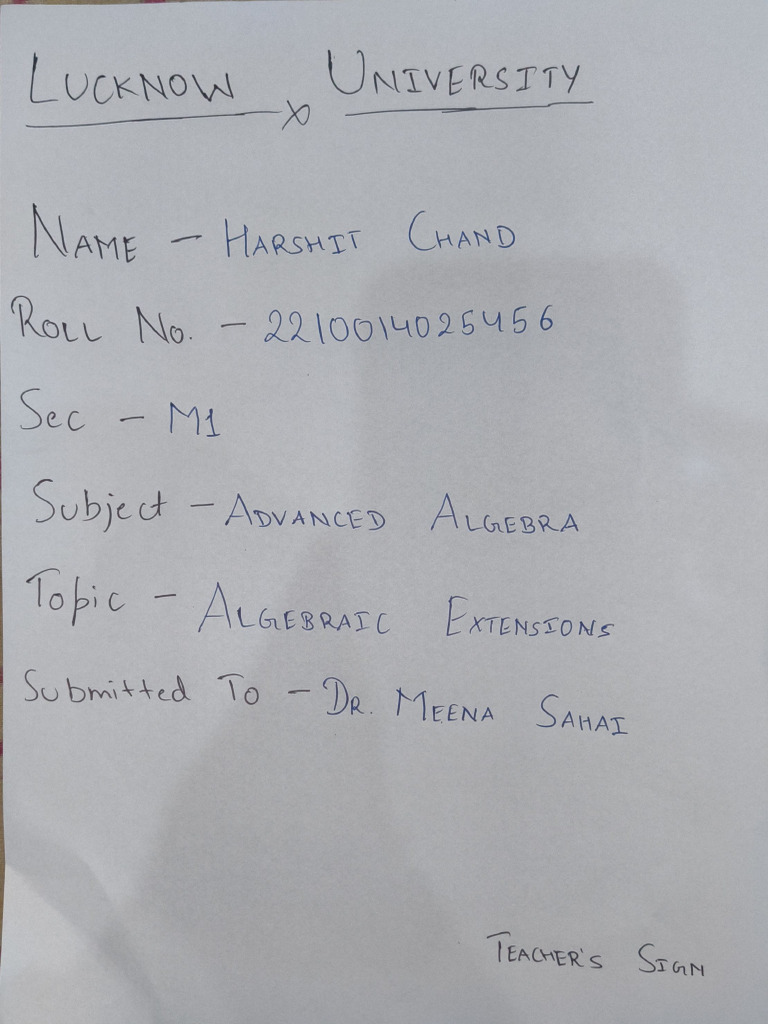 LUCKNOW UNIVERSITY
NAME - HARSHIT CHAND
ROLL No. - 2210014025456
Sec - M1
Subject - ADVANCED ALGEBRA
Topic - ALGEBRAIC EXTENSIONS
Submitted To - DR. MEENA SAHAI
TEACHER'S SIGN